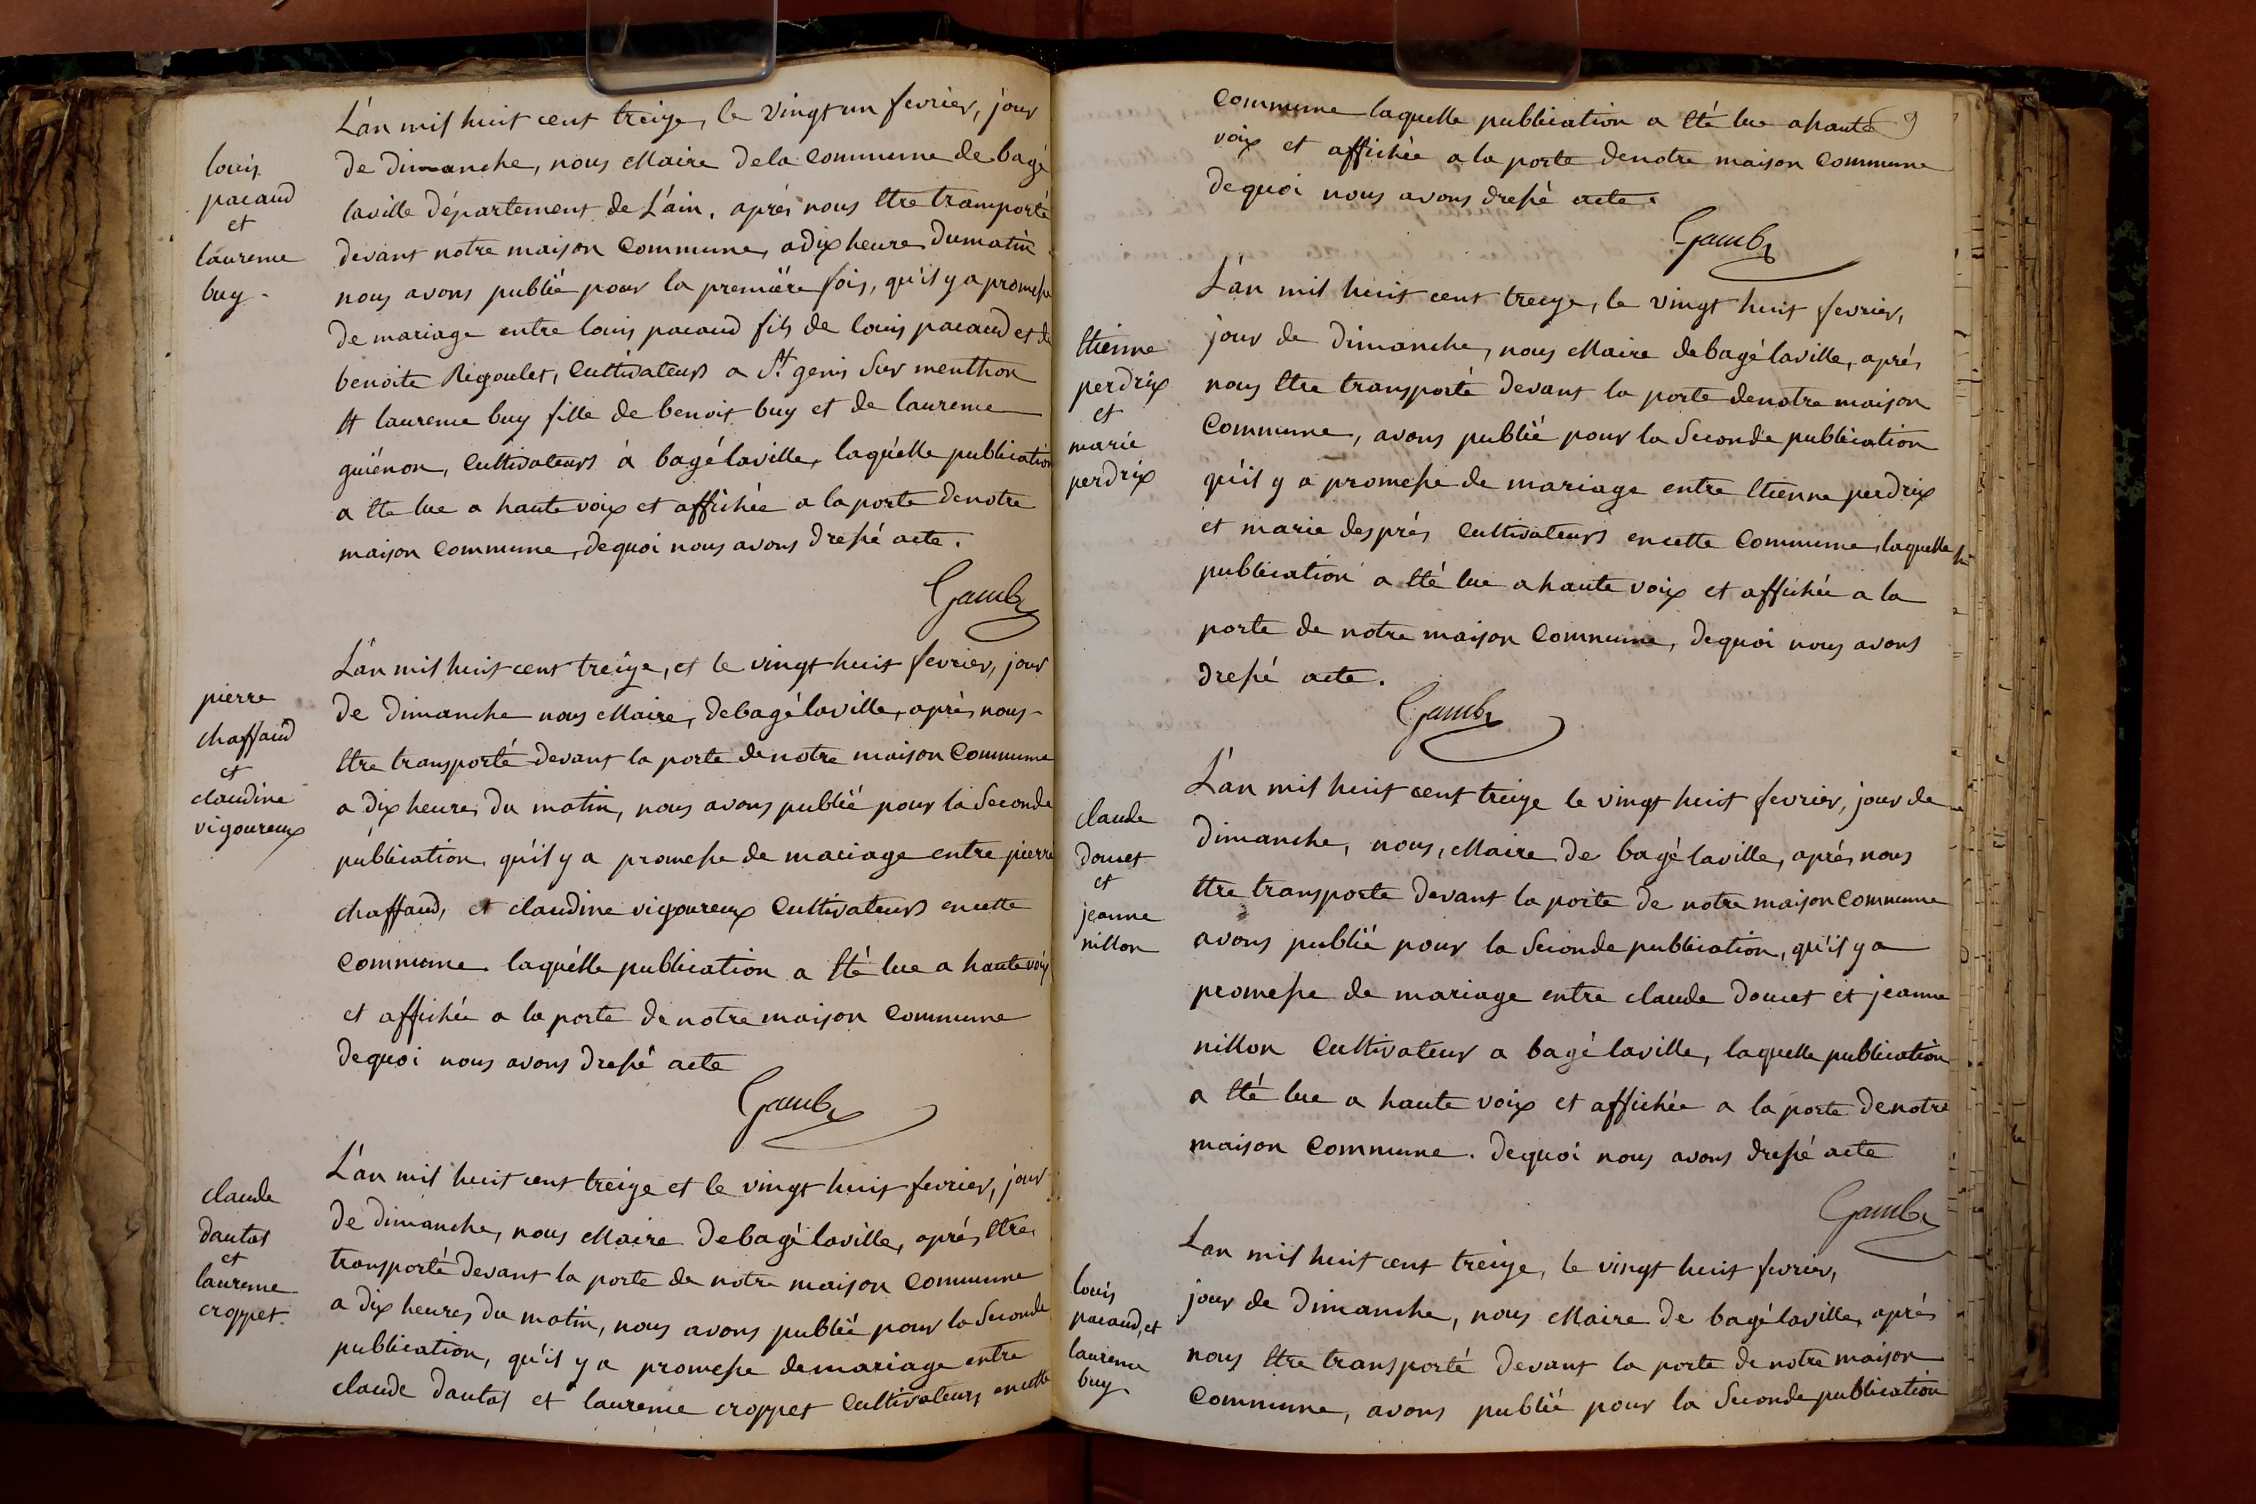 louis
pacaud
et
laurence
buy.
L'an mil huit cent treize, le vingt un fevrier, jour
de dimanche, nous Maire de la commune de bagé
laville département de L'ain, aprés nous etre transporté
devant notre maison commune, a dix heures du matin
nous avons publié pour la premiere fois, qu'il y a promesse
de mariage entre louis pacaud fils de louis pacaud et de
benoite Rigoulet, cultivateurs a St genis sur menthon
et laurence buy fille de benoit buy et de laurence
guiénon, cultivateurs à bagé laville, laquelle publication
a ete lue a haute voix et affichée a la porte de notre
maison commune, de quoi nous avons dressé acte.
pierre
chaffaud
et
claudine
vigoureux
L'an mil huit cent treize, et le vingt huit fevrier, jour
de dimanche nous Maire, de bagé laville, aprés nous
etre transporté devant la porte de notre maison commune
a dix heures du matin, nous avons publié pour la seconde
publication, qu'il y a promesse de mariage entre pierre
chaffaud, et claudine vigoureux cultivateurs en cette
commune laquélle publication a été lue a haute voix
et affichée a la porte de notre maison commune
de quoi nous avons dressé acte
claude
dautat
et
laurence
croppet.
L'an mil huit cent treize et le vingt huit fevrier, jour
de dimanche, nous Maire de bagé laville, aprés etre
transporté devant la porte de notre maison commune
a dix heures du matin, nous avons publié pour la seconde
publication, qu'il y a promesse de mariage entre
claude dautat et laurence croppet cultivateurs en cette
9
commune laquelle publication a été lue a haute
voix et affichée a la porte de notre maison commune
de quoi nous avons dressé acte.
etienne
perdrix
et
marie
perdrix
L'an mil huit cent treize, le vingt huit fevrier,
jour de dimanche, nous Maire de bagé laville, aprés
nous etre transporté devant la porte de notre maison
commune, avons publié pour la seconde publication
qu'il y a promesse de mariage entre etienne perdrix
et marie després cultivateurs en cette commune, laquelle
publication a été lue a haute voix et affichée a la
porte de notre maison commune, de quoi nous avons
dressé acte.
claude
doucet
et
jeanne
nillon
L'an mil huit cent treize le vingt huit fevrier, jour de
dimanche, nous, Maire de bagé laville, aprés nous
etre transporte devant la porte de notre maison commune
avons publié pour la seconde publication, qu'il y a
promesse de mariage entre claude doucet et jeanne
nillon cultivateur a bagé laville, laquelle publication
a été lue a haute voix et affichée a la porte de notre
maison commune. de quoi nous avons dressé acte
louis
pacaud, et
laurence
buy
L'an mil huit cent treize, le vingt huit fevrier,
jour de dimanche, nous Maire de bagé laville, aprés
nous etre transporté devant la porte de notre maison
commune, avons publié pour la seconde publication